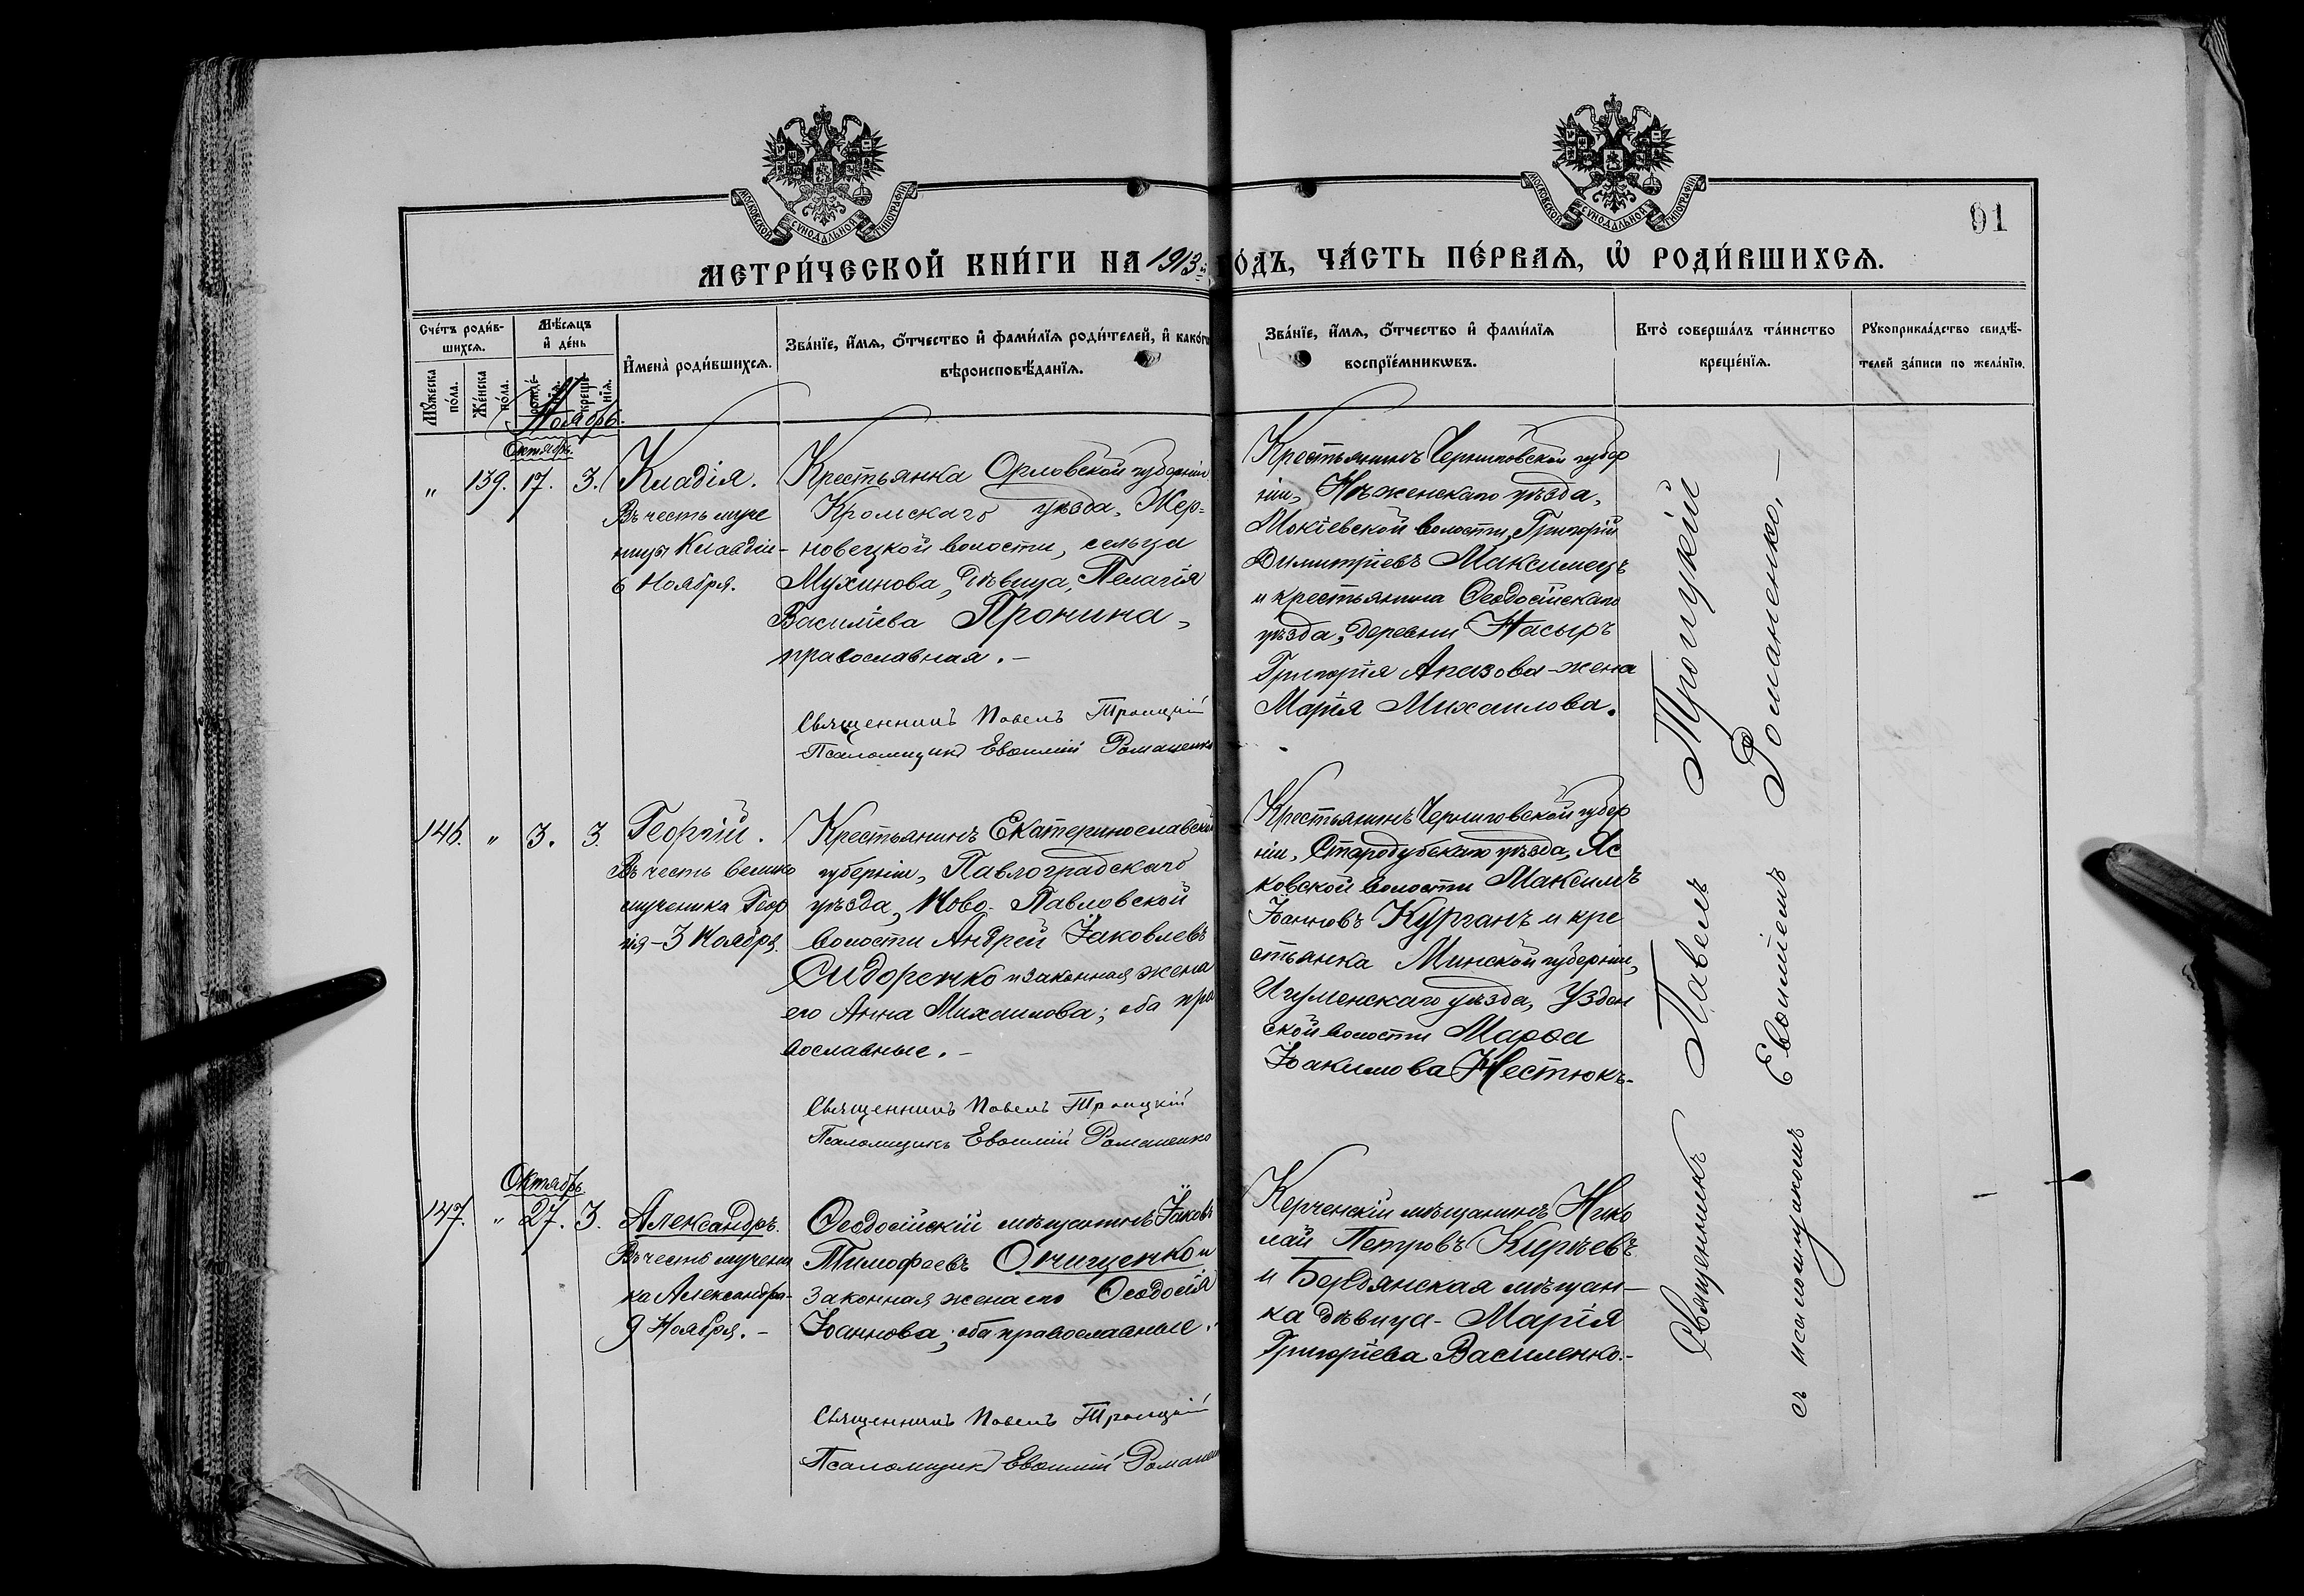 МОСКОВСКОЙ СѴНОДАЛЬНОЙ ТИПОГРАФІИ
МОСКОВСКОЙ СѴНОДАЛЬНОЙ ТИПОГРАФІИ
91
МЕТРИ́ЧЕСКОЙ КНИ́ГИ НА 1913 й
О́ДЪ, ЧА́СТЬ ПЕ́РВАѦ, Ѡ҆ РОДИ́ВШИХСѦ.
Сче́тъ роди́в-
шихсѧ.
Мꙋ́жеска
по́ла.
Же́нска
по́ла.
Мѣ́сѧцъ
и҆ де́нь
рожде́-
нїѧ.
креще́-
нїѧ.
И҆мена̀ роди́вшихсѧ.
Зва́нїе, и҆́мѧ, ѻ҆́тчество и҆ фами́лїѧ роди́телей, и҆ како́гѡ
вѣроисповѣ́данїѧ.
Зва́нїе, и҆́мѧ, ѻ҆́тчество и҆ фами́лїѧ
воспрїе́мникѡвъ.
Кто̀ соверша́лъ та́инство
креще́нїѧ.
Рꙋкоприкла́дство свидѣ́-
телей за́писи по жела́нїю.
Ноябрь.
Октябрь.
" 139. 17. 3.
Клавдія.
Въ честь муче
ницы Клавдіи-
6 Ноября.
Крестьянка Орловской губерніи
Кромскаго уѣзда, Жер-
новецкой волости, сельца
Мухинова, дѣвица, Пелагія
Василіева Пронина,
православная.-
Священникъ Павелъ Троицкій
Псаломщикъ Евѳимій Романенко
Крестьянинъ Черниговской губер
ніи, Нѣженскаго уѣзда,
Мокіевской волости, Григорій
Димитріевъ Максимецъ
и крестьянина Ѳеодосійскаго
уѣзда, деревни Насыръ
Григорія Апазова-жена
Марія Михаилова.
146. " 3. 3.
Георгій.
Въ честь велико
мученика Геор
гія-3 Ноября.
Крестьянинъ Екатеринославской
губерніи, Павлоградскаго
уѣзда, Ново-Павловской
волости Андрей Іаковлевъ
Сидоренко и законная жена
его Анна Михаилова; оба пра
вославные.-
Священникъ Павелъ Троицкій
Псаломщикъ Евѳимій Романенко
Крестьянинъ Черниговской губер
ніи, Стародубскаго уѣзда, Яс
ковской волости Максимъ
Іоанновъ Курганъ и кре
стьянка Минской губерніи,
Игуменскаго уѣзда, Узден
ской волости Марѳа
Іоакимова Нестюкъ.
Октябрь
147. " 27. 3.
Александръ.
Въ честь мучени
ка Александра-
9 Ноября.-
Ѳеодосійскій мѣщанинъ Іаковъ
Тимофеевъ Онищенко и
законная жена его Ѳеодосія
Іоаннова; оба православные.
Священникъ Павелъ Троицкій
Псаломщикъ Евѳимій Романенко
Керченскій мѣщанинъ Нико
лай Петровъ Кирѣевъ
и Бердянская мѣщан-
ка дѣвица-Марія
Григоріева Василенко.-
Священникъ Павелъ Троицкій
съ псаломщикомъ Евѳиміемъ Романенко.-